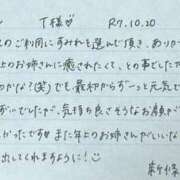 T様♡ R7.10.20
のご利用にすみれを選んで頂き、ありが
上のお姉さんに癒されたくて、その事でしたが
かな?(笑)でも、最初からずーっと元気で
ずいでしたが、気持ち良さそうなお顔が
かったです♡また年上のお姉さんがいいな
出してくれますように!
新條